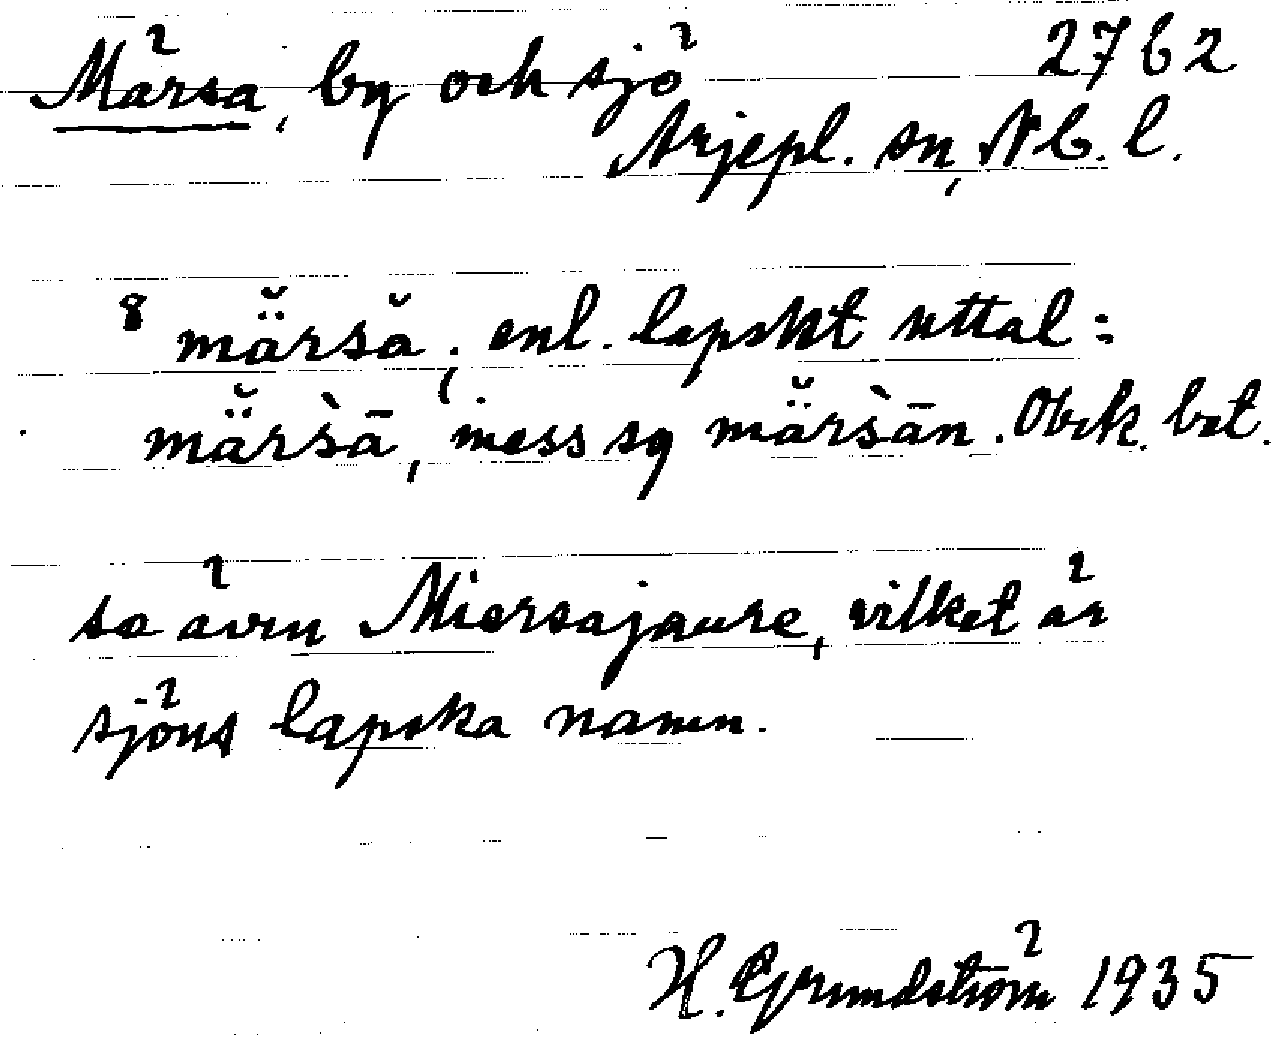 Märsa, by och sjö 2762
Arjepl. sn, Nb. l.
8 mä̆rsă; enl. lapskt uttal:
mä̆rs̀ā, iness sg mä̆rs̀ān. Obek. bet.
se även Miersajaure, vilket är
sjöns lapska namn.
H. Grundström 1935